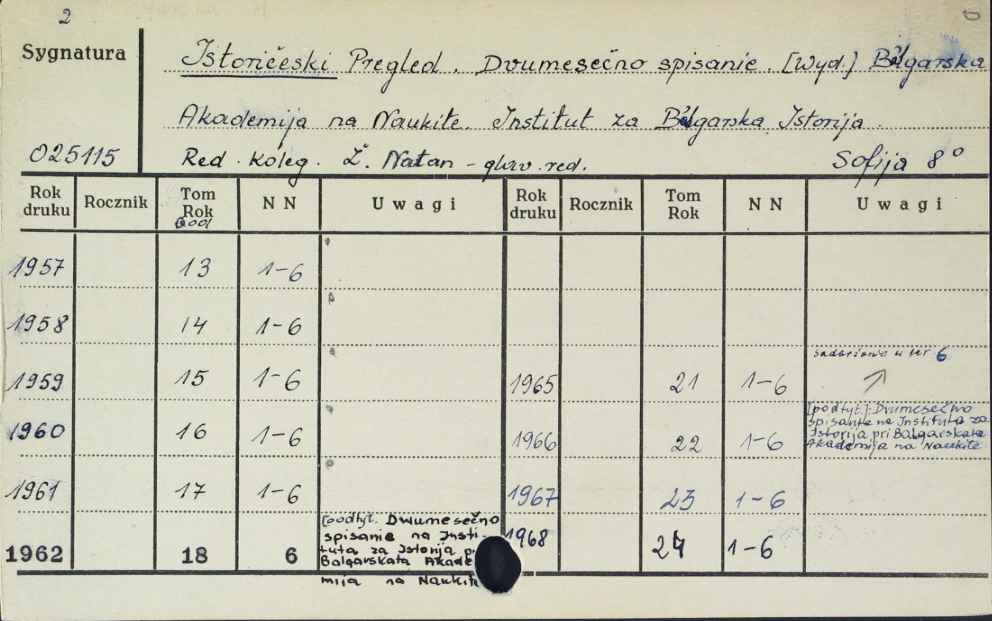 2
Sygnatura
Istoričeski Pregled. Dvumesečno spisanie. [Wyd.] Bălgarska
Akademija na Naukite. Institut za Bălgarska Istorija.
025115
Red. koleg. Ž. Natan - glav. red.
Sofija 8°
Rok druku Rocznik Tom Rok NN Uwagi Rok druku Rocznik Tom Rok NN Uwagi
God
1957 13 1-6
1958 14 1-6
w nr 6
1959 15 1-6 1965 21 1-6
1960 16 1-6 1966 22 1-6
[podtyt.]: Dvumesečno
spisanie na Instituta za
Istorija pri Bălgarskata
Akademija na Naukite
1961 17 1-6 1967 23 1-6
1962 18 6 1968 24 1-6
[podtyt. Dwumesečno
spisanie na Insti-
tuta za Istorija
Balgarskata Akade
mija na Naukit